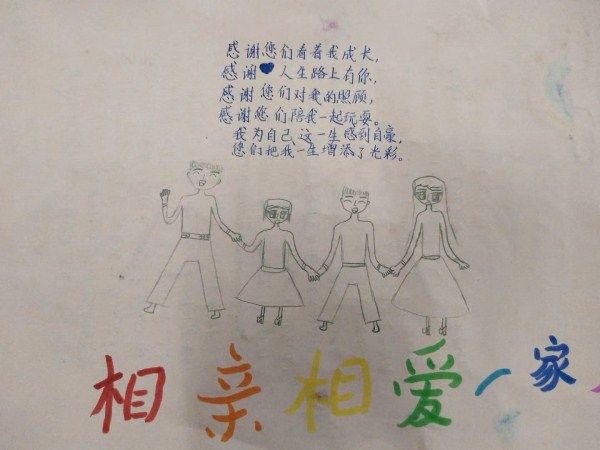 感谢您们看着我成长,
感谢 人生路上有你.
感谢您们对我的照顾,
感谢您们陪我一起玩耍。
我为自己这一生感到自豪,
您们把我一生增添了光彩。
相亲相爱一家